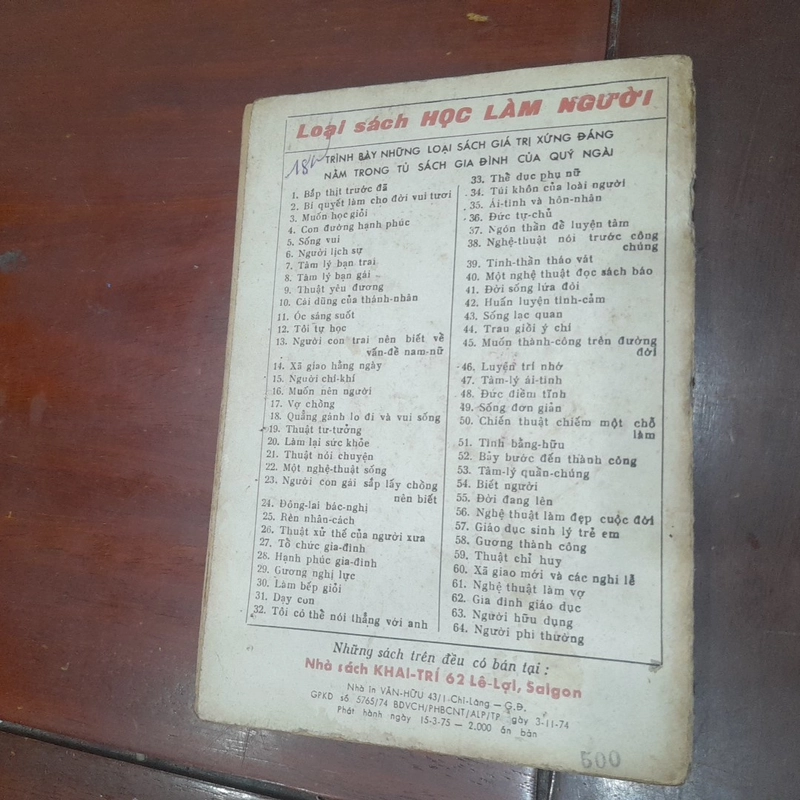 Loại sách HỌC LÀM NGƯỜI
TRÌNH BÀY NHỮNG LOẠI SÁCH GIÁ TRỊ XỨNG ĐÁNG
NẰM TRONG TỦ SÁCH GIA ĐÌNH CỦA QUÝ NGÀI
1. Bắp thịt trước đã
2. Bí quyết làm cho đời vui tươi
3. Muốn học giỏi
4. Con đường hạnh phúc
5. Sống vui
6. Người lịch sự
7. Tâm lý bạn trai
8. Tâm lý bạn gái
9. Thuật yêu đương
10. Cái dũng của thánh-nhân
11. Óc sáng suốt
12. Tôi tự học
13. Người con trai nên biết về
vấn-đề nam-nữ
14. Xã giao hằng ngày
15. Người chí-khí
16. Muốn nên người
17. Vợ chồng
18. Quẳng gánh lo đi và vui sống
19. Thuật tư-tưởng
20. Làm lại sức khỏe
21. Thuật nói chuyện
22. Một nghệ-thuật sống
23. Người con gái sắp lấy chồng
nên biết
24. Đông-lai bác-nghị
25. Rèn nhân-cách
26. Thuật xử thế của người xưa
27. Tổ chức gia-đình
28. Hạnh phúc gia-đình
29. Gương nghị lực
30. Làm bếp giỏi
31. Dạy con
32. Tôi có thể nói thẳng với anh
33. Thể dục phụ nữ
34. Túi khôn của loài người
35. Ái-tình và hôn-nhân
36. Đức tự-chủ
37. Ngón thần để luyện tâm
38. Nghệ-thuật nói trước công
chúng
39. Tinh-thần tháo vát
40. Một nghệ thuật đọc sách báo
41. Đời sống lứa đôi
42. Huấn luyện tình-cảm
43. Sống lạc quan
44. Trau giồi ý chí
45. Muốn thành-công trên đường
đời
46. Luyện trí nhớ
47. Tâm-lý ái-tình
48. Đức điềm tĩnh
49. Sống đơn giản
50. Chiến thuật chiếm một chỗ
làm
51. Tình bằng-hữu
52. Bảy bước đến thành công
53. Tâm-lý quần-chúng
54. Biết người
55. Đời đang lên
56. Nghệ thuật làm đẹp cuộc đời
57. Giáo dục sinh lý trẻ em
58. Gương thành công
59. Thuật chỉ huy
60. Xã giao mới và các nghi lễ
61. Nghệ thuật làm vợ
62. Gia đình giáo dục
63. Người hữu dụng
64. Người phi thường
Những sách trên đều có bán tại :
Nhà sách KHAI-TRÍ 62 Lê-Lợi, Saigon
Nhà in VĂN-HỮU 43/1 Chi-Lăng — G.Đ.
GPKD số 5765/74 BDVCH/PHBCNT/ALP/TP ngày 3-11-74
Phát hành ngày 15-3-75 — 2.000 ấn bản
500